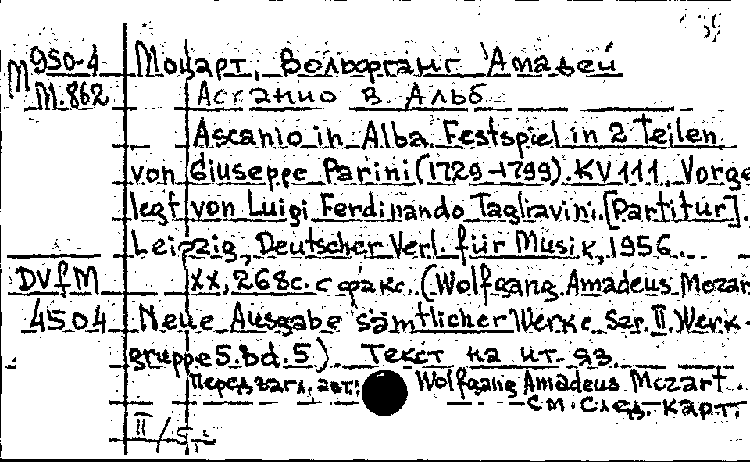 М 950-4 Моцарт, Вольфганг Амадей
М.862 Асканио в Альб
Ascanio in Alba. Festspiel in 2 Teilen
von Giuseppe Parini (1729-1799). KV 111. Vorge
legt von Luigi Ferdinando Tagliavini. [Partitur].
Leipzig, Deutscher Verl. für Musik, 1956.
DVfM XX, 268 с. с факс. (Wolfgang Amadeus Mozar
4504 Neue Ausgabe sämtlicher Werke. Ser. II. Werk-
gruppe 5. Bd. 5). Текст на ит. яз.
Перед загл. авт: Wolfgang Amadeus Mozart.
см. след. карт.
II/5,